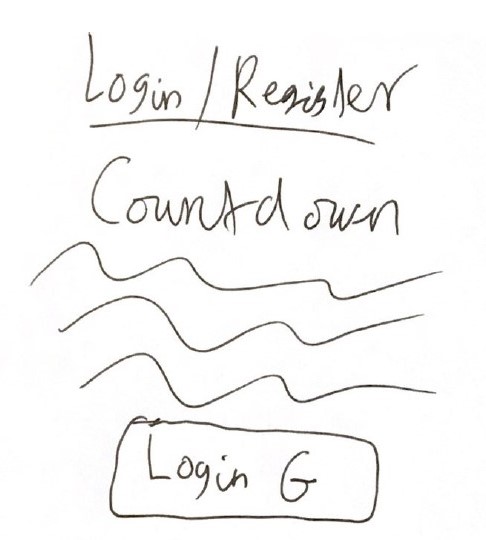 Login / Register
Countdown
Login G